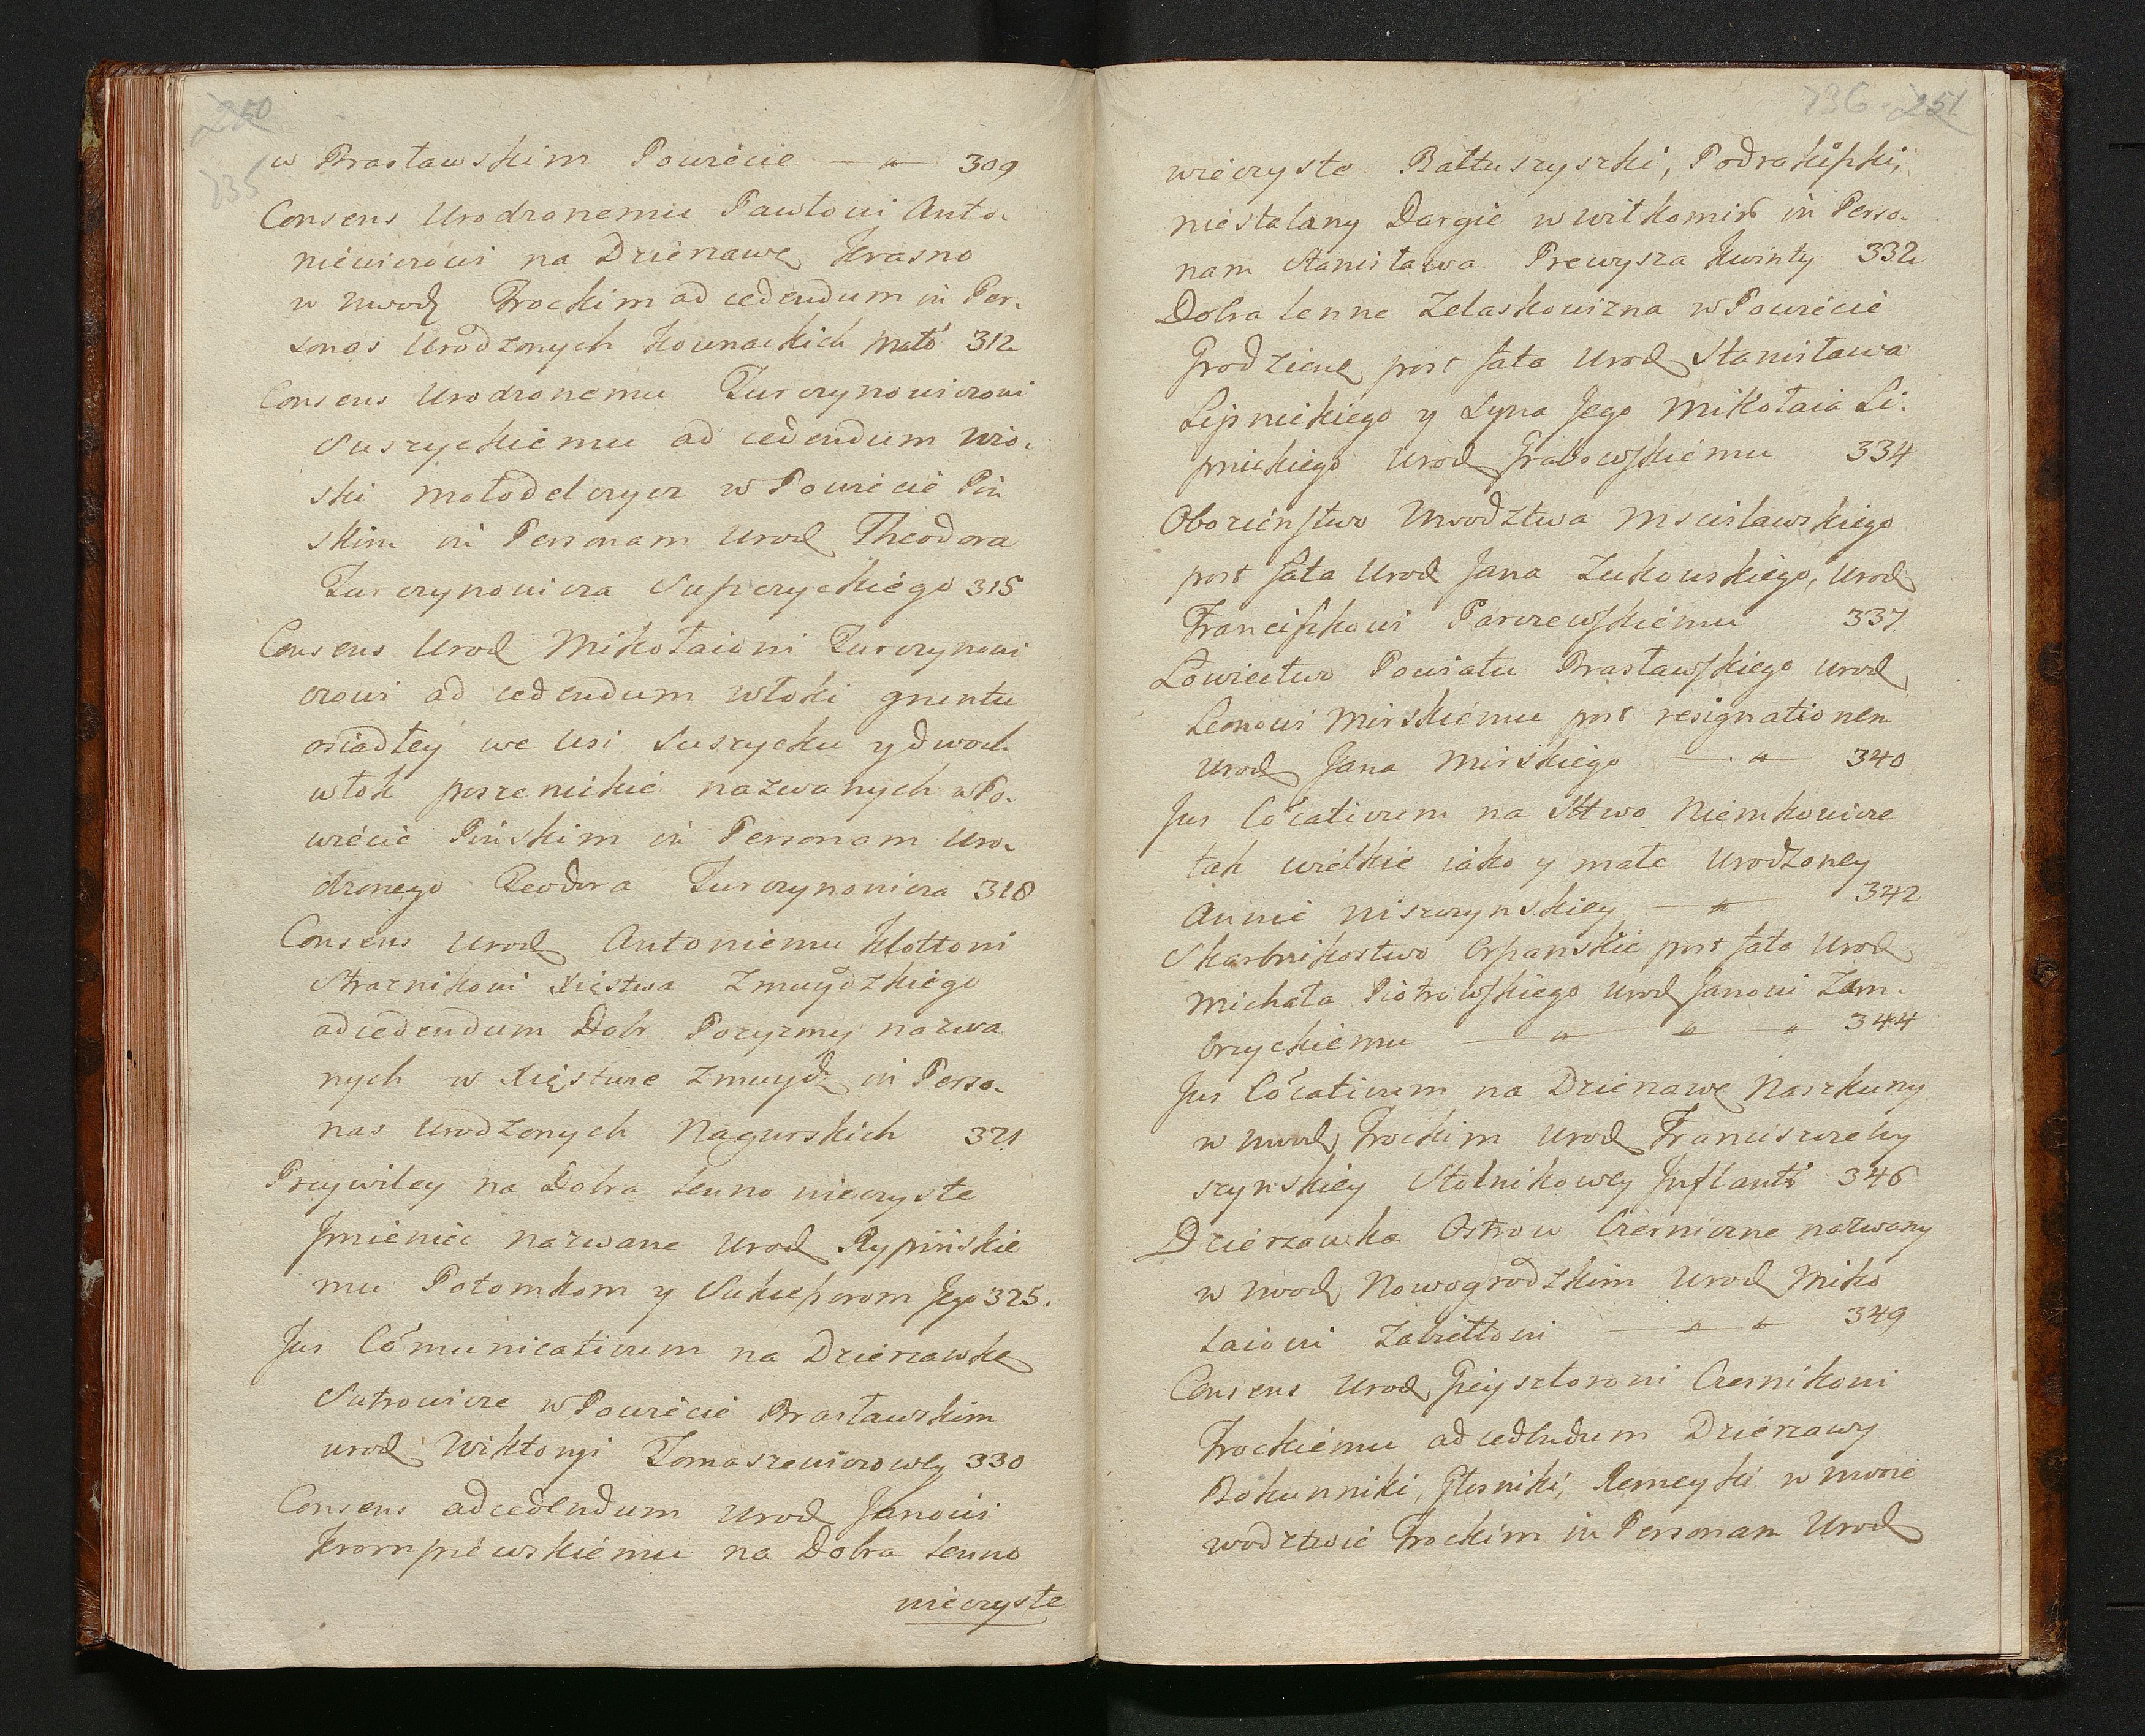 250
735
w Brasławskim Powiecie — " — 309
Consens Urodzonemu Pawłowi Anto-
niewiczowi na Dzierzawę Krasno
w Nwod Trockim ad cedendum in Per-
sonas Urodzonych Kownackich Matt 312
Consens Urodzonemu Turczynowiczowi
Suszyckiemu ad cedendum Wio-
ski Mołodelczycz w Powiecie Piń
skim in Personam Urod Theodora
Turczynowicza Suszyckiego 315
Consens Urod Mikołaiowi Turczynowi
czowi ad cedendum włoki gruntu
osiadłey we Wsi Suszycku y dwoch
włok pszenickie nazwanych w Po-
wiecie Pińskim in Personam Uro-
dzonego Teodora Turczynowicza 318
Consens Urod Antoniemu Kłottowi
Straznikowi Xięstwa Zmuydzkiego
ad cedendum Dobr Pozyzmy nazwa
nych w Xięstwie Zmuydz in Perso-
nas Urodzonych Nagurskich 321
Przywiley na Dobra Lenno wieczyste
Jmieniec nazwane Urod Rypińskie
mu Potomkom y Sukcessorom Jego 325.
Jus Cómunicativum na Dzierzawkę
Sutrowicze w Powiecie Brasławskim
Urod Wiktoryi Tomaszewiczowey 330
Consens ad cedendum Urod Janowi
Krompiewskiemu na Dobra Lenno
wieczyste
736 251
wieczyste Bałtuszyszki, Podrakiszki,
niestalany Dargie w Wiłkomir in Perso-
nam Stanisława Prewysza Kwinty 332
Dobra Lenne Zelaskowizna w Powiecie
Grodzien post fata Urod Stanisława
Lipnickiego y Syna Jego Mikołaia Li-
pnickiego Urod Grabowskiemu 334
Obozieństwo Nwodztwa Mscisławskiego
post fata Urod Jana Zukowskiego, Urod
Franciszkowi Parczewskiemu 337
Łowiectwo Powiatu Brasławskiego Urod
Leonowi Mirskiemu post resignationem
Urod Jana Mirskiego — " — 340
Jus Cócativum na Sttwo Niemkowicze
tak wielkie iako y małe Urodzoney
Annie Niszczynskiey — " — 342
Skarbnikostwo Orszanskie post fata Urod
Michała Piotrowskiego Urod Janowi Zam-
brzyckiemu — " — " — " 344
Jus Cócativum na Dzierzawę Naszkuny
w Nwod Trockim Urod Franciszce Wy
szynskiey Stolnikowey Jnflantt 346
Dzierzawka Ostrow Czerniczne nazwany
w Nwod Nowogrodzkim Urod Miko
łaiowi Zabiełłowi — " — " 349
Consens Urod Giysztorowi Czesnikowi
Trockiemu ad cedendum Dzierzawy
Bokunniki, Remeyki w Nwoie
wodztwie Trockim in Personam Urod